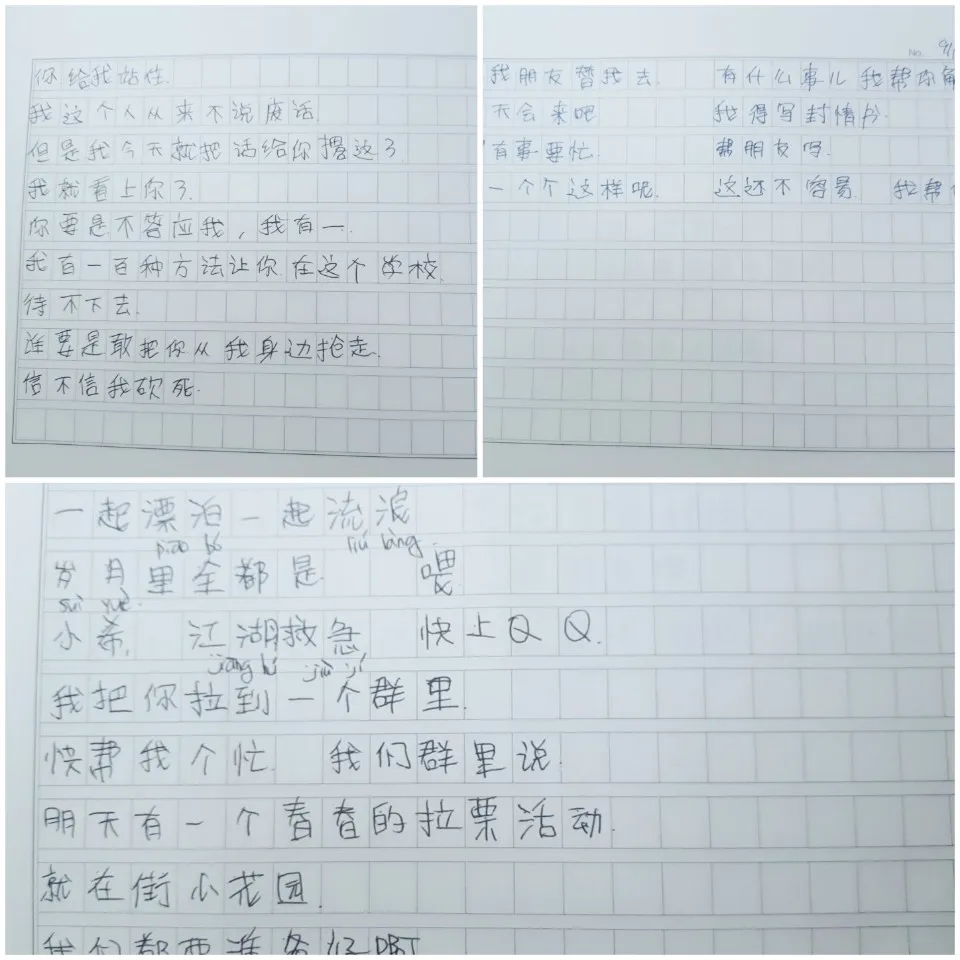 你给我站住.
我这个人从来不说废话.
但是我今天就把话给你撂这了
我就看上你了.
你要是不答应我，我有一.
我有一百种方法让你在这个学校.
待不下去.
谁要是敢把你从我身边抢走.
信不信我砍死.
No.
我朋友替我去. 有什么事儿 我帮你解
天会来吧 我得写封情书.
有事要忙. 帮朋友吗.
一个个这样呢. 这还不容易. 我帮你
一起漂泊一起流浪
piao bó liú làng
岁月里全都是. 喂
suì yuè
小希, 江湖救急 快上QQ.
jiāng hú jiù jí
我把你拉到一个群里.
快帮我个忙. 我们群里说.
明天有一个青春的拉票活动.
就在街小花园.
我们都要准备好PPT